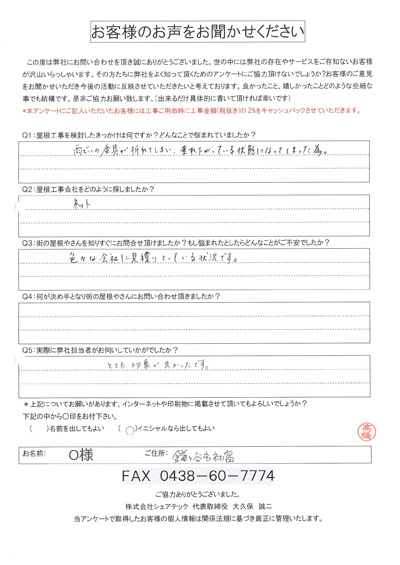 お客様のお声をお聞かせください
この度は弊社にお問い合わせを頂き誠にありがとうございました。世の中には弊社の存在やサービスをご存知ないお客様
が沢山いらっしゃいます。その方たちに弊社をよく知って頂くためのアンケートにご協力頂けないでしょうか?お客様のご意見
をお聞かせいただき今後の活動に反映させていただきたいと考えております。良かったこと、嬉しかったことどのような些細な
事でも結構です。是非ご協力お願い致します。(出来るだけ具体的に書いて頂ければ幸いです)
*本アンケートにご記入いただいたお客様には工事ご用命時に工事金額(税抜き)の2%をキャッシュバックさせていただきます。
Q1:屋根工事を検討したきっかけは何ですか?どんなことで悩まれていましたか?
雨どいの金具が折れてしまい、垂れ下がっている状態になってしまった為。
Q2:屋根工事会社をどのように探しましたか?
ネット
Q3:街の屋根やさんを知りすぐにお問合せ頂けましたか?もし悩まれたとしたらどんなことがご不安でしたか?
色々な会社に見積りとっている状況です。
Q4:何が決め手となり街の屋根やさんにお問い合わせ頂きましたか?
Q5:実際に弊社担当者がお伺いしていかがでしたか?
とても印象が良かったです。
*上記についてお願いがあります。インターネットや印刷物に掲載させて頂いてもよろしいでしょうか?
下記の中から〇印をお付下さい。
( )名前を出してもよい (〇)イニシャルなら出してもよい
高橋
お名前: O様 ご住所: 鎌ケ谷市初富
FAX 0438-60-7774
ご協力ありがとうございました。
株式会社シェアテック 代表取締役 大久保 誠二
当アンケートで取得したお客様の個人情報は関係法規に基づき厳正に管理いたします。